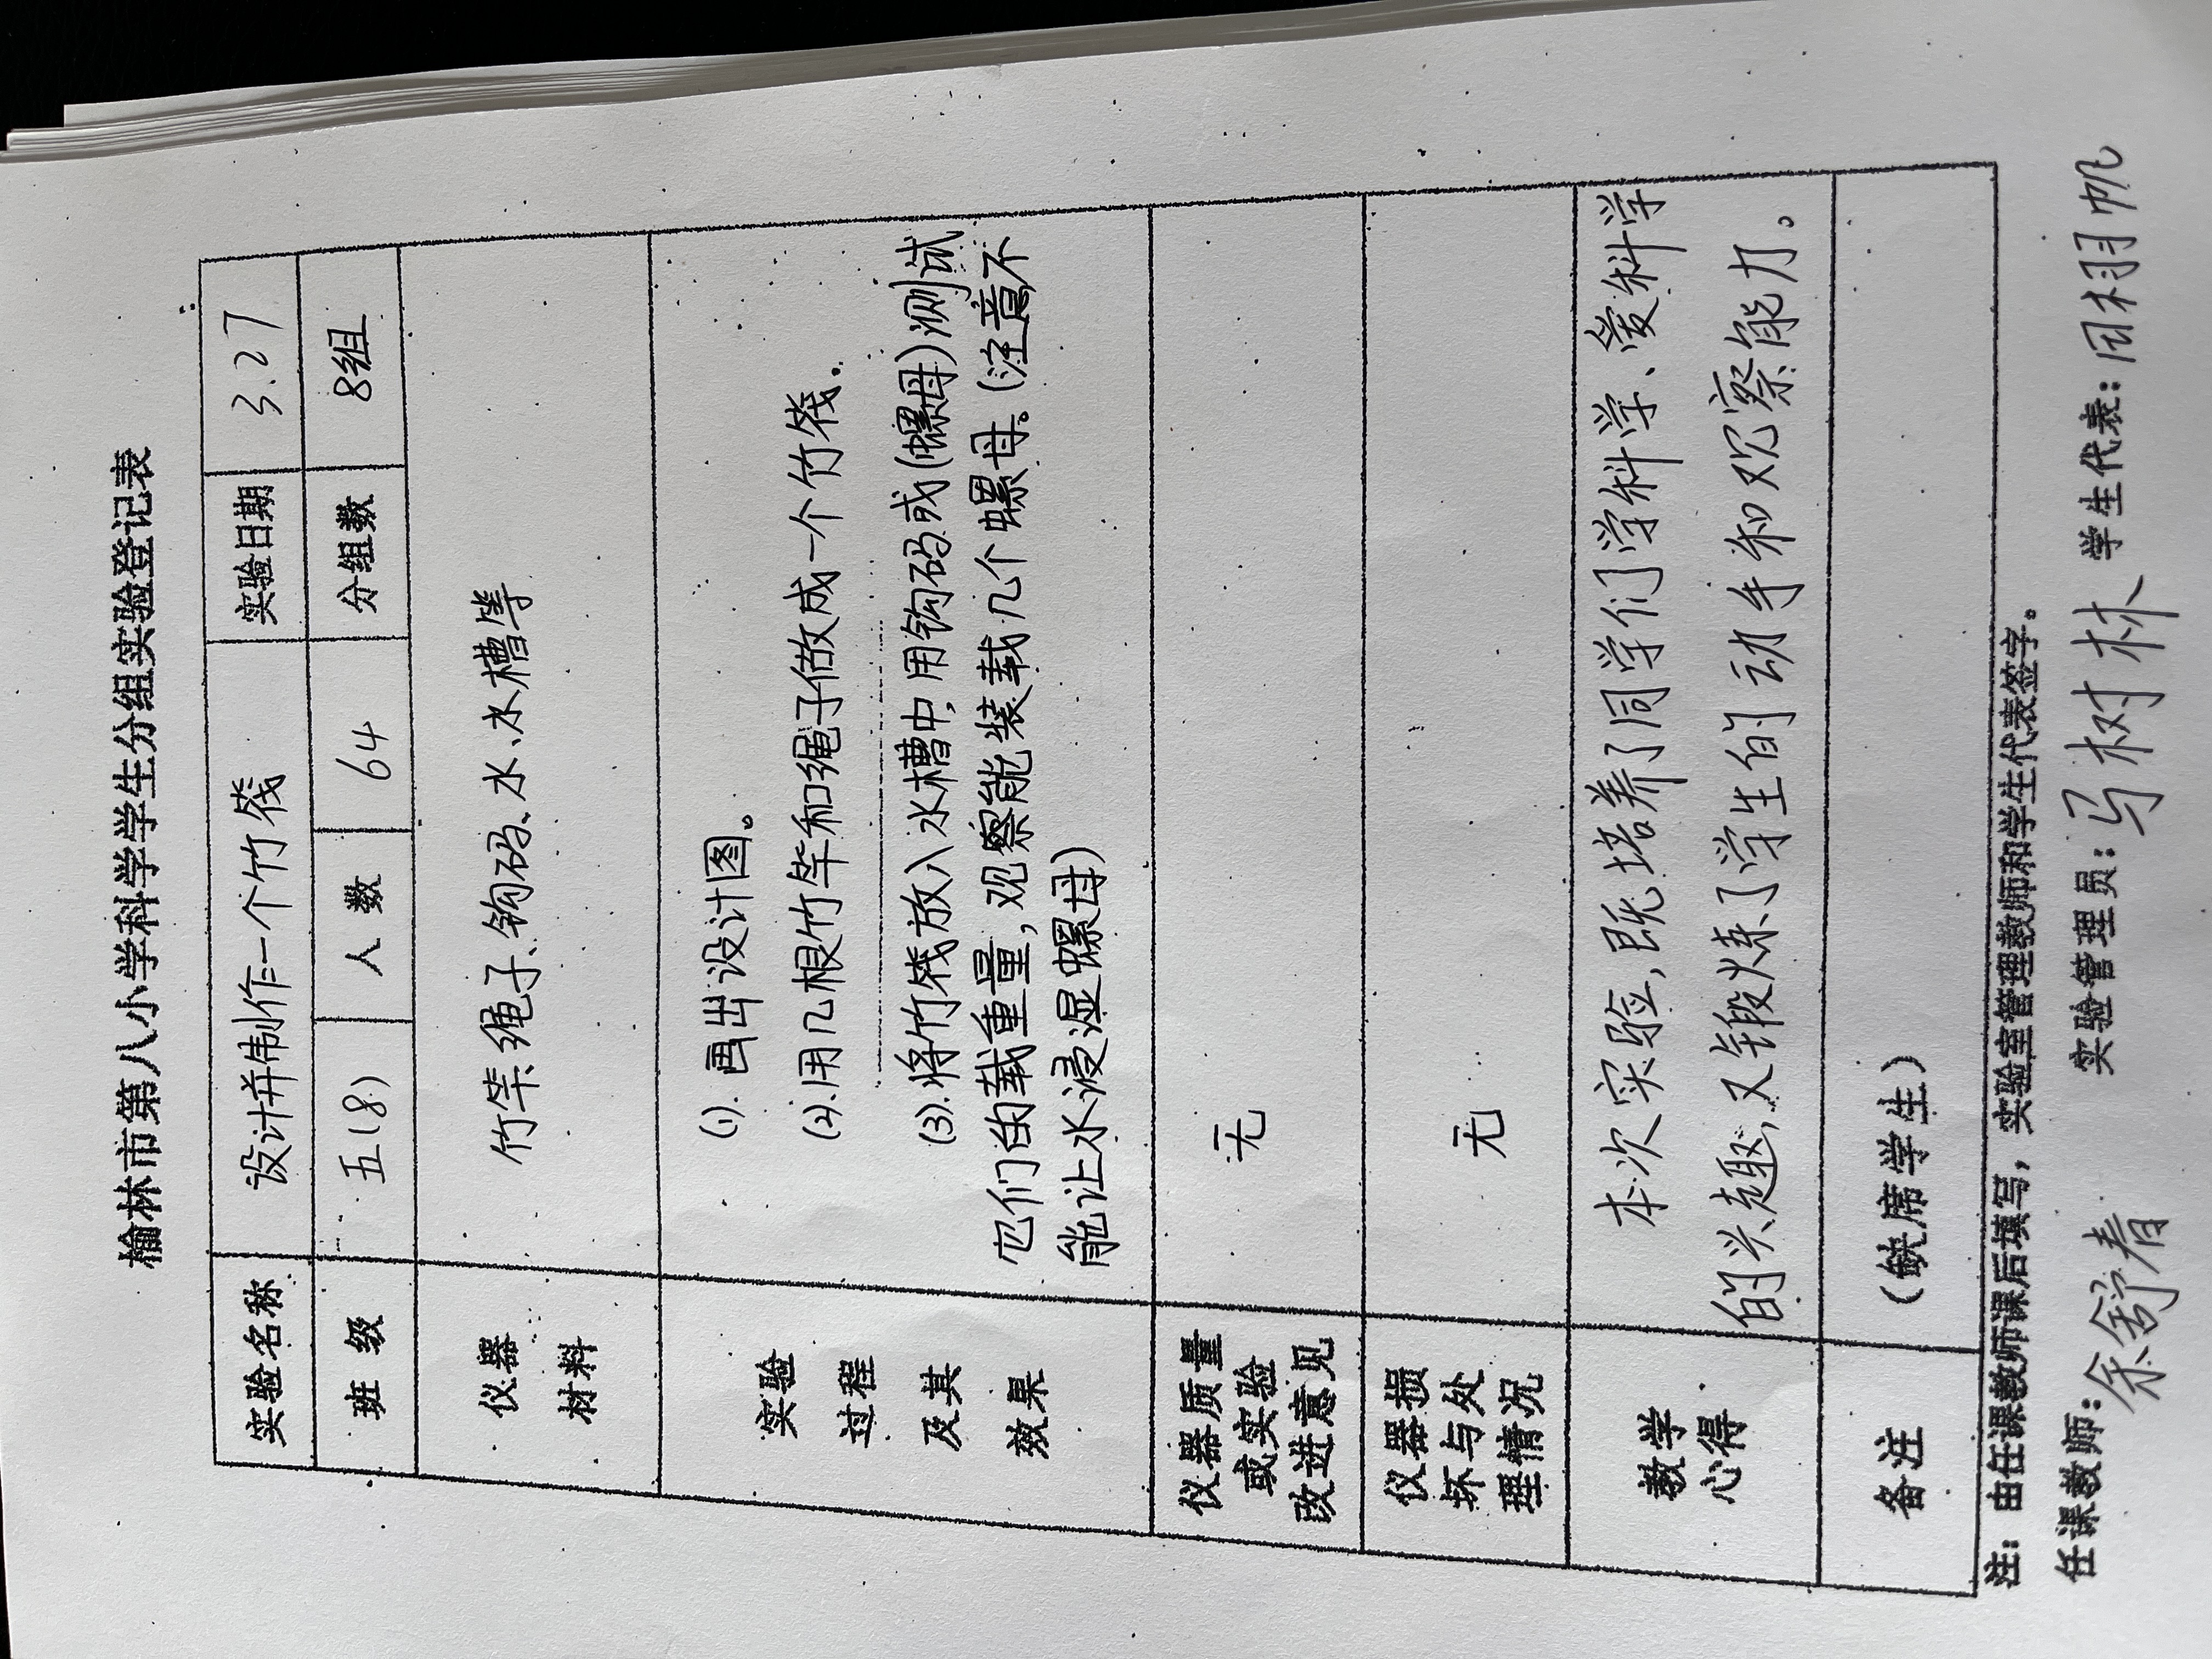 榆林市第八小学科学学生分组实验登记表
实验名称 设计并制作一个竹筏 实验日期 3.27
班级 五(8) 人数 64 分组数 8组
仪器
材料
竹竿、绳子、钩码、水、水槽等
实验
过程
及其
效果
(1).画出设计图。
(2).用几根竹竿和绳子做成一个竹筏.
(3).将竹筏放入水槽中,用钩码或(螺母)测试
它们的载重量,观察能装载几个螺母。(注意不
能让水浸湿螺母)
仪器质量
或实验
改进意见
无
仪器损
坏与处
理情况
无
教学
心得
本次实验,既培养了同学们学科学、爱科学
的兴趣,又锻炼了学生的动手和观察能力。
备注 (缺席学生)
注:由任课教师课后填写,实验室管理教师和学生代表签字。
任课教师:余舒春 实验管理员:马树林 学生代表:田栩帆